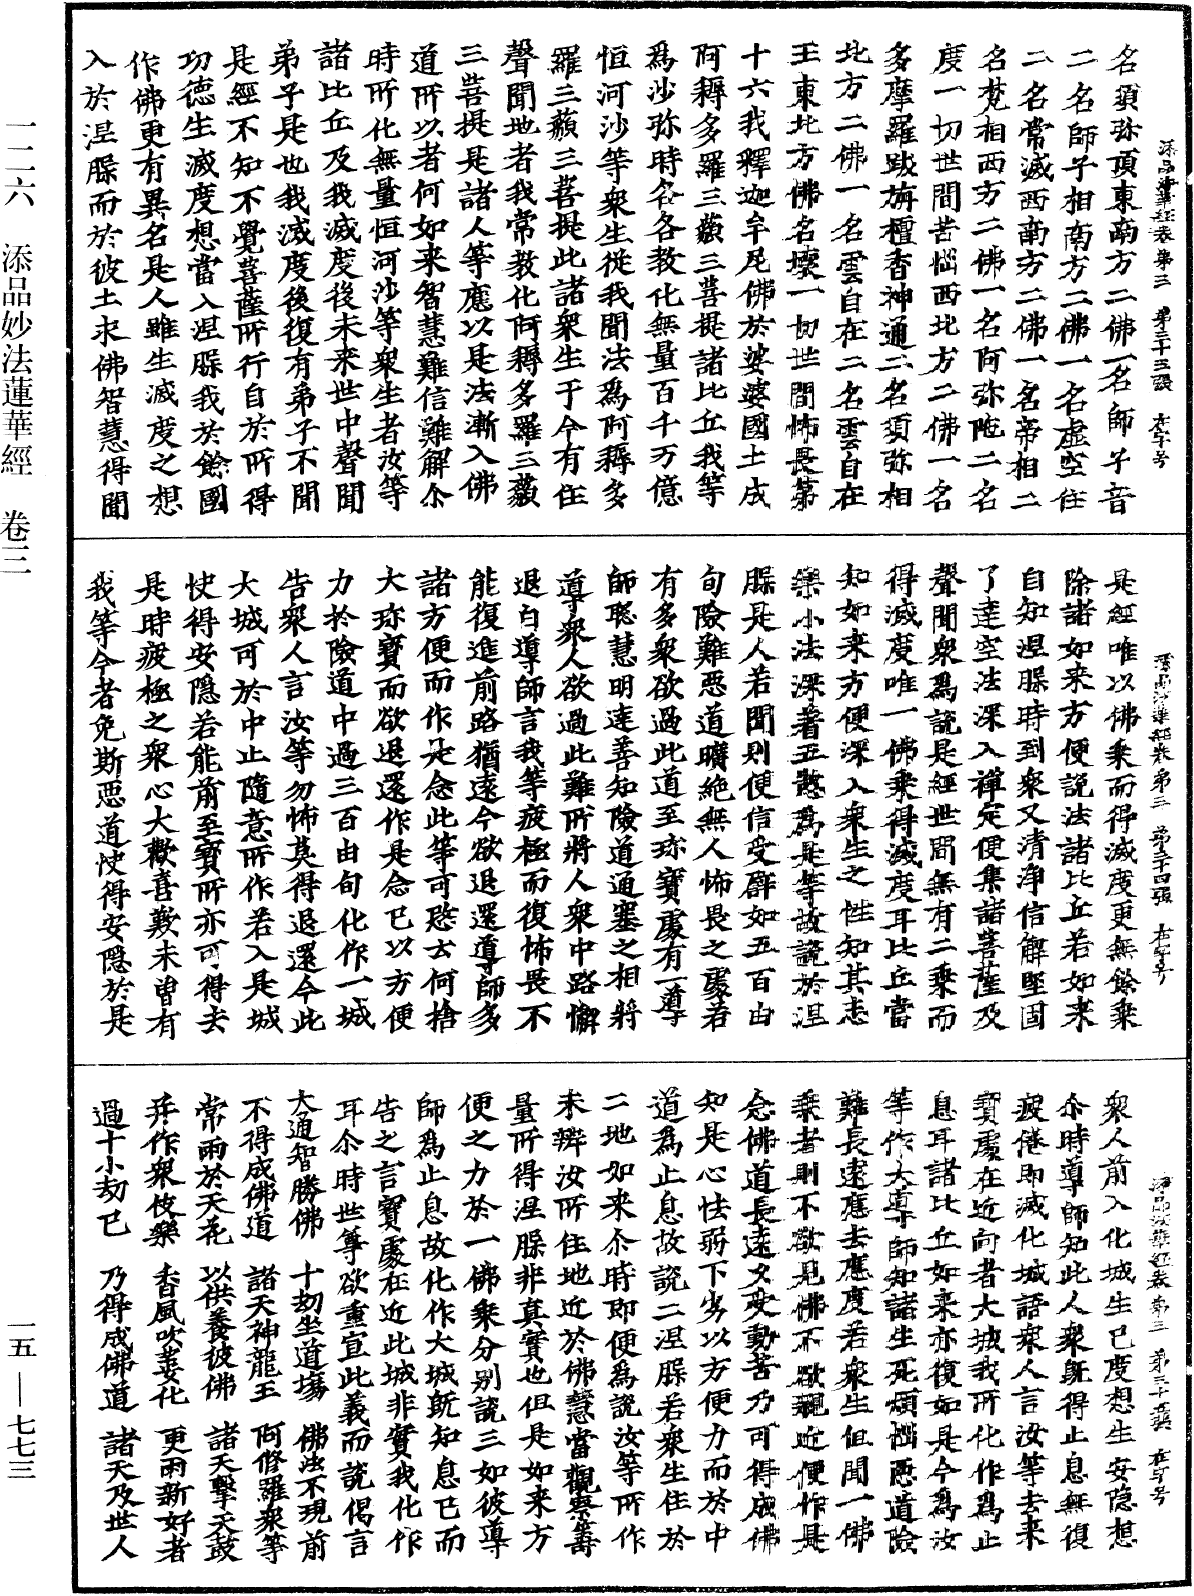 添品法華經卷第三 第三十三張 在字号
名須弥頂東南方二佛一名師子音
二名師子相南方二佛一名虛空住
二名常滅西南方二佛一名帝相二
名梵相西方二佛一名阿弥陁二名
度一切世間苦惱西北方二佛一名
多摩羅跋栴檀香神通二名須弥相
北方二佛一名雲自在二名雲自在
王東北方佛名壞一切世間怖畏第
十六我釋迦牟尼佛於娑婆國土成
阿耨多羅三藐三菩提諸比丘我等
爲沙弥時各各教化無量百千万億
恒河沙等衆生從我聞法爲阿耨多
羅三藐三菩提此諸衆生于今有住
聲聞地者我常教化阿耨多羅三藐
三菩提是諸人等應以是法漸入佛
道所以者何如来智慧難信難解尒
時所化無量恒河沙等衆生者汝等
諸比丘及我滅度後未来世中聲聞
弟子是也我滅度後復有弟子不聞
是經不知不覺菩薩所行自於所得
功德生滅度想當入涅脲我於餘國
作佛更有異名是人雖生滅度之想
入於涅脲而於彼土求佛智慧得聞
添品法華經卷第三 第三十四張 在字号
是經唯以佛乗而得滅度更無餘乗
除諸如来方便說法諸比丘若如来
自知涅脲時到衆又清淨信解堅固
了達空法深入禪定便集諸菩薩及
聲聞衆爲說是經世間無有二乗而
得滅度唯一佛乗得滅度耳比丘當
知如来方便深入衆生之性知其志
樂小法深著五慾爲是等故說於涅
脲是人若聞則便信受譬如五百由
旬險難惡道曠絶無人怖畏之處若
有多衆欲過此道至珎寶處有一導
師聡慧明達善知險道通塞之相將
導衆人欲過此難所將人衆中路懈
退白導師言我等疲極而復怖畏不
能復進前路猶遠今欲退還導師多
諸方便而作是念此等可愍云何捨
大珎寶而欲退還作是念已以方便
力於險道中過三百由旬化作一城
告衆人言汝等勿怖莫得退還今此
大城可於中止隨意所作若入是城
快得安隱若能前至寶所亦可得去
是時疲極之衆心大歡喜歎未曽有
我等今者免斯惡道快得安隱於是
添品法華經卷第三 第三十五張 在字号
衆人前入化城生已度想生安隱想
尒時導師知此人衆旣得止息無復
疲惓即滅化城語衆人言汝等去来
寶處在近向者大城我所化作爲止
息耳諸比丘如来亦復如是今爲汝
等作大導師知諸生死煩惱惡道險
難長遠應去應度若衆生但聞一佛
乗者則不欲見佛不欲親近便作是
念佛道長遠久受勤苦乃可得成佛
知是心怯弱下劣以方便力而於中
道爲止息故說二涅脲若衆生住於
二地如来尒時即便爲說汝等所作
未辦汝所住地近於佛慧當觀察籌
量所得涅脲非真實也但是如来方
便之力於一佛乗分别說三如彼導
師爲止息故化作大城旣知息已而
告之言寶處在近此城非實我化作
耳尒時世尊欲重宣此義而說偈言
大通智勝佛 十劫坐道場 佛法不現前
不得成佛道 諸天神龍王 阿修羅衆等
常雨於天花 以供養彼佛 諸天擊天鼓
并作衆伎樂 香風吹萎花 更雨新好者
過十小劫已 乃得成佛道 諸天及世人
一二六 添品妙法蓮華經 卷三
一五——七七三